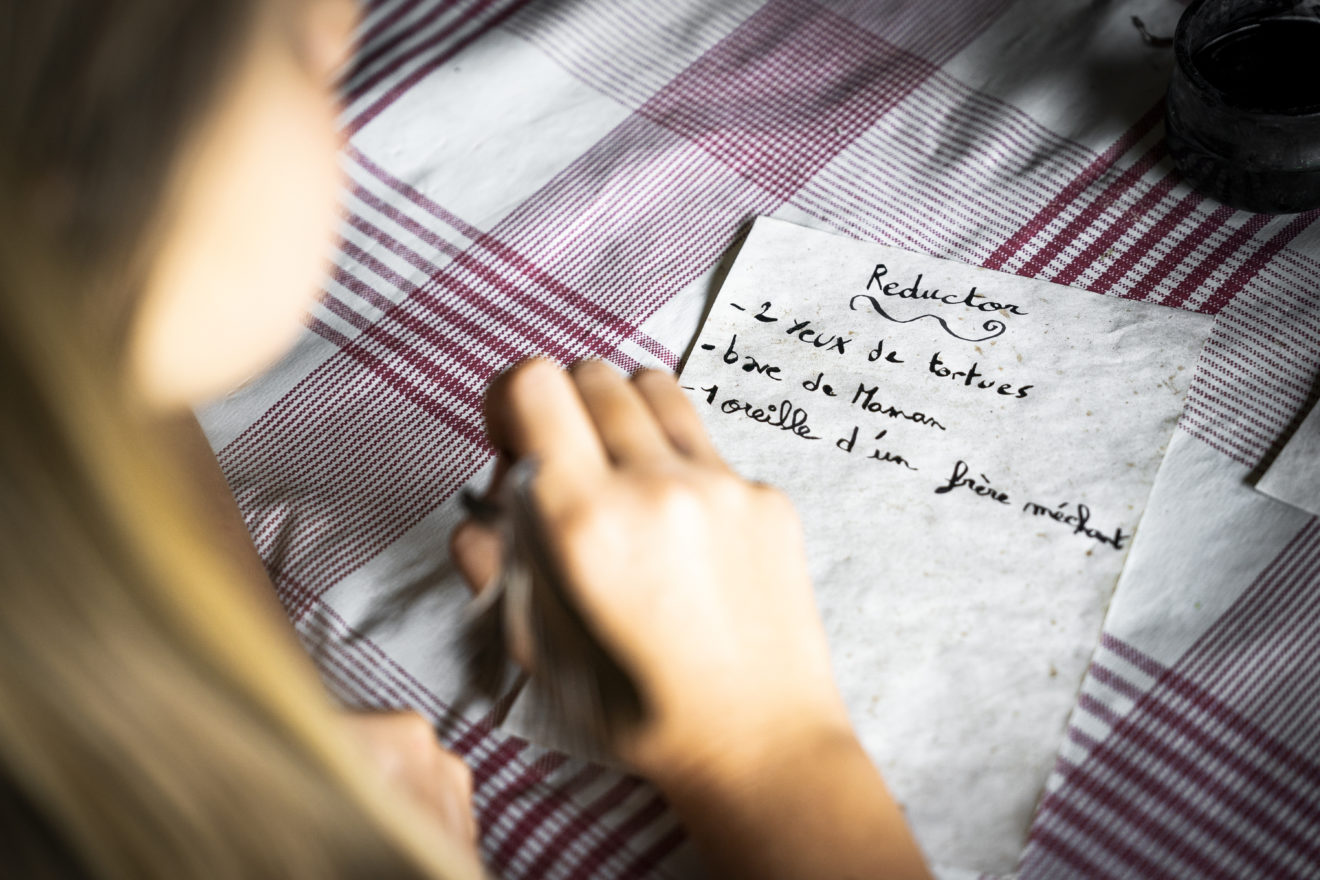 Reductor
- 2 Yeux de tortues
- bave de Maman
- 1 oreille d'un frère méchant